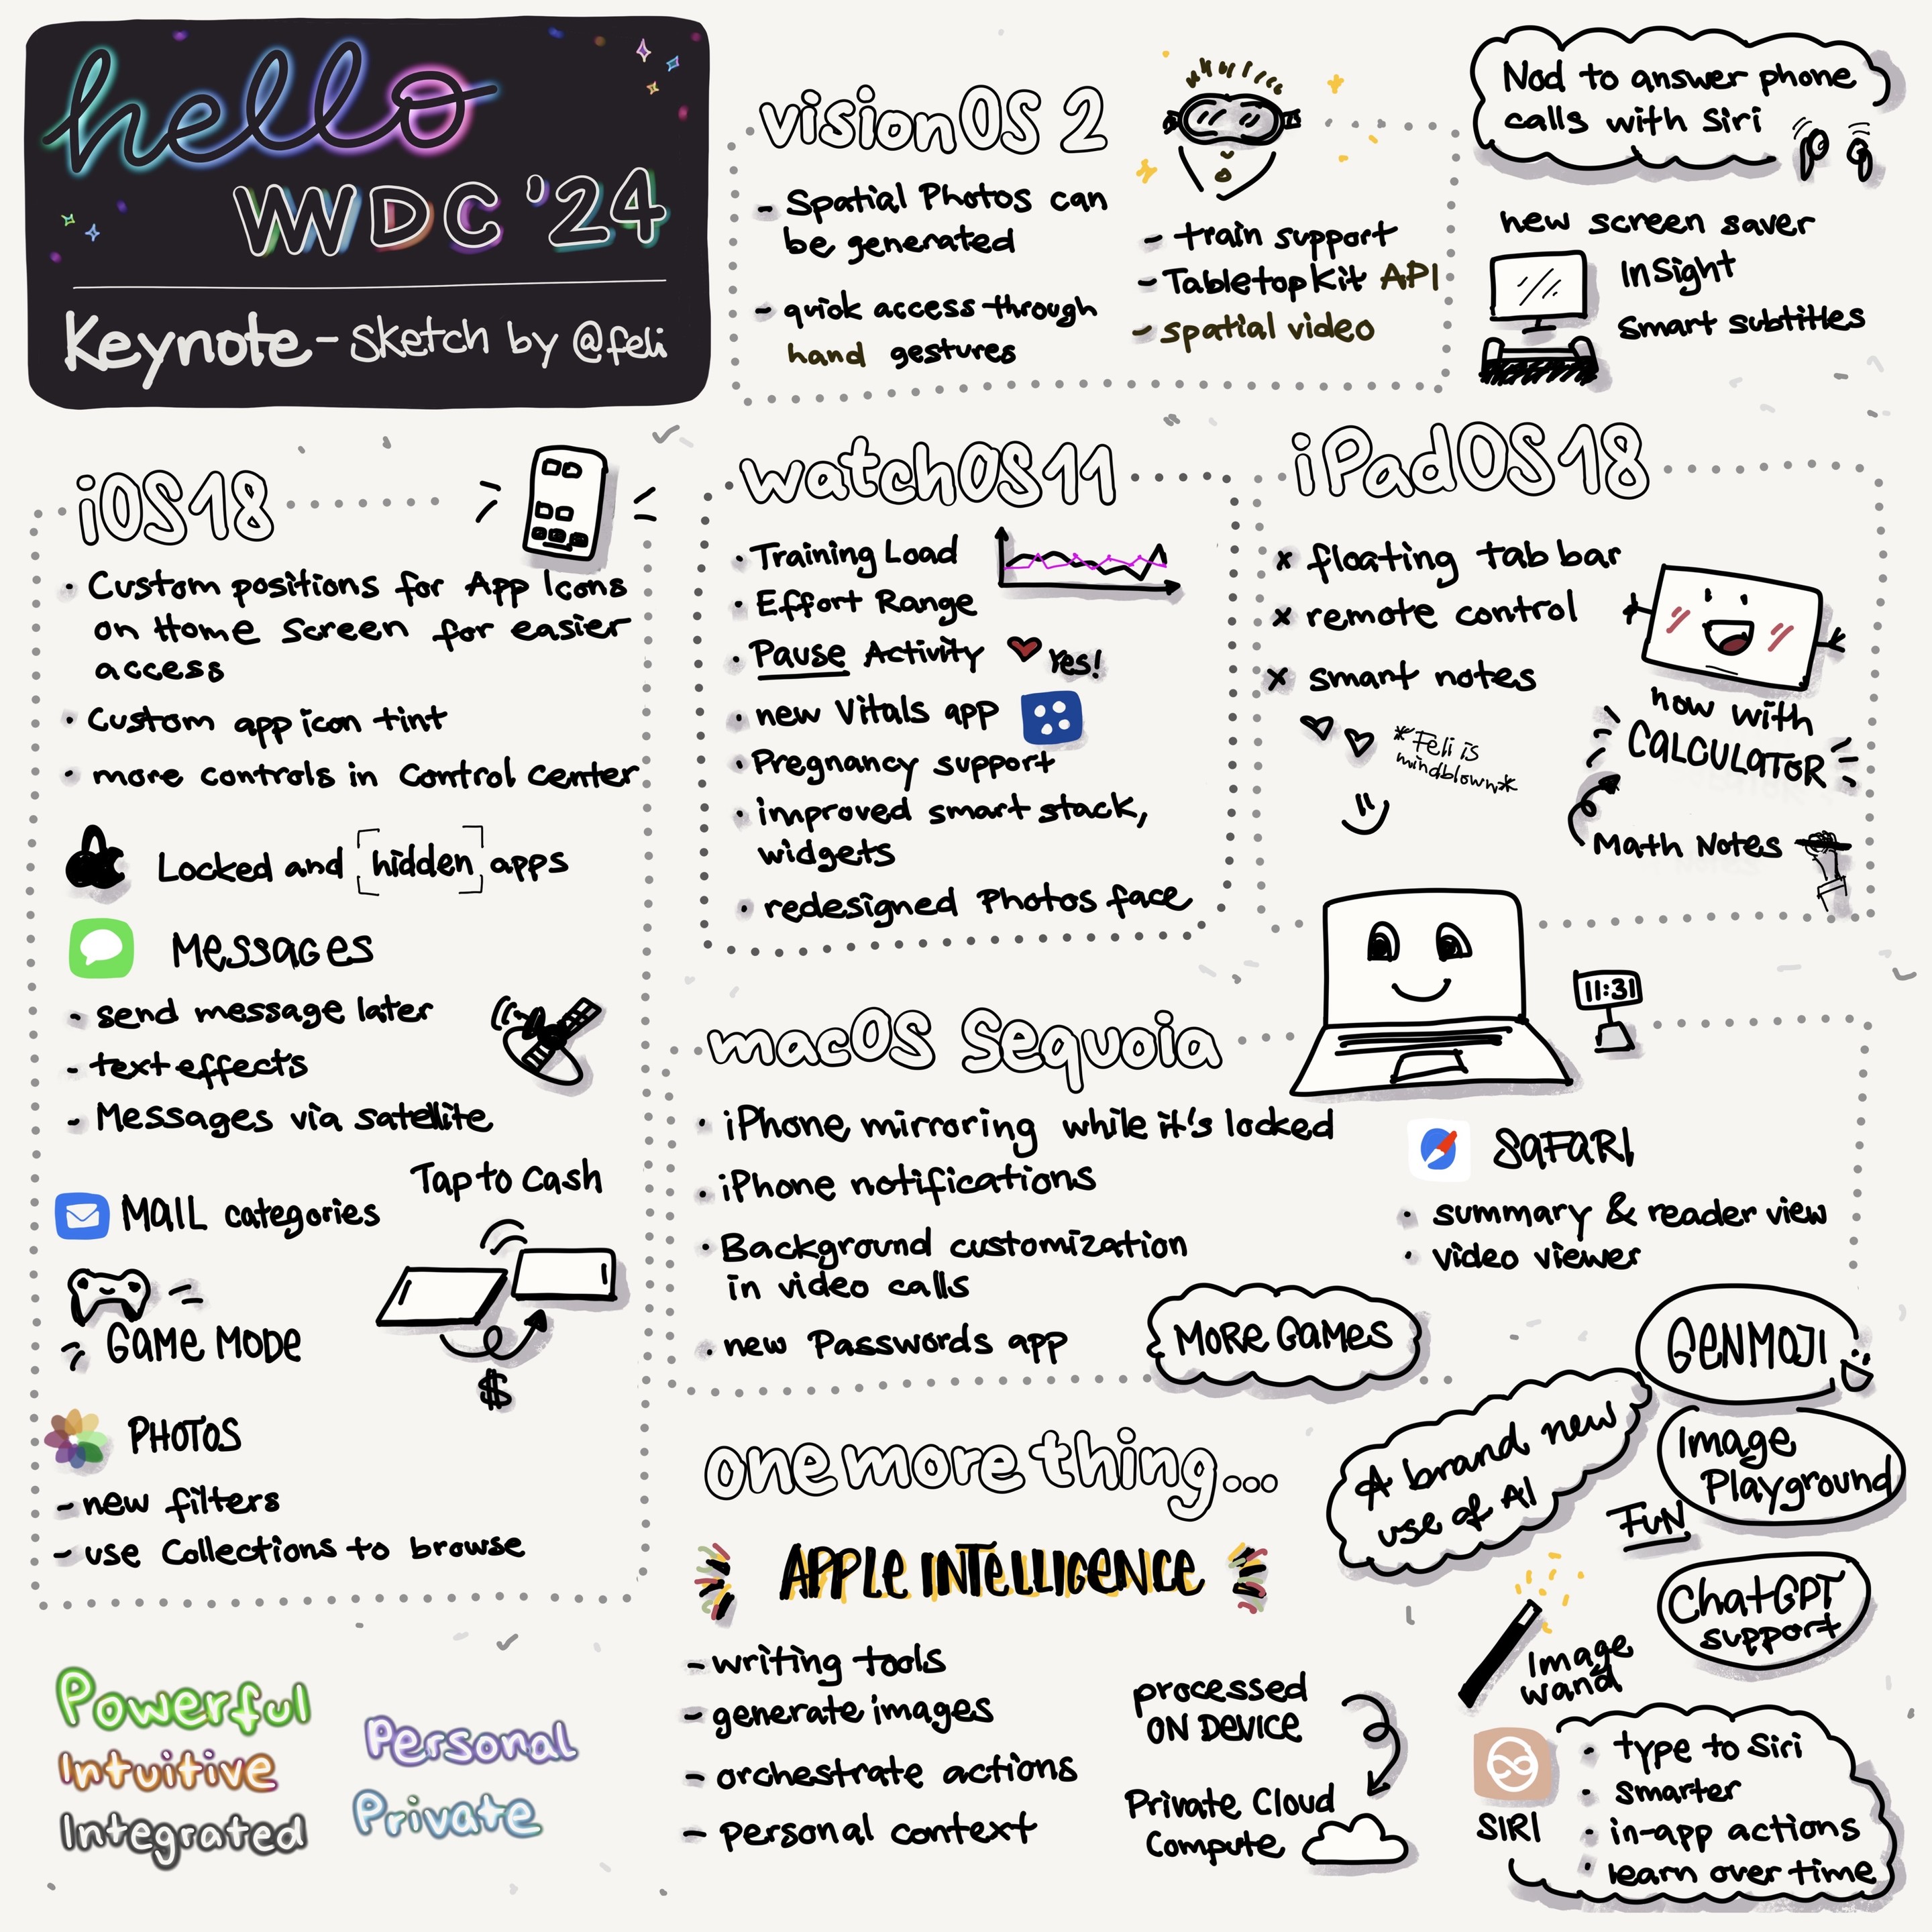 hello
WWDC '24
Keynote - sketch by @feli
visionOS 2
- Spatial Photos can
be generated
- quick access through
hand gestures
- train support
- TabletopKit API
- spatial video
Nod to answer phone
calls with Siri
new screen saver
InSight
Smart subtitles
iOS18
· Custom positions for App Icons
on Home Screen for easier
access
· Custom app icon tint
· more controls in Control Center
Locked and [hidden] apps
Messages
- send message later
- text effects
- Messages via satellite
MAIL categories
Tap to Cash
$
GAME MODE
PHOTOS
- new filters
- use Collections to browse
watchOS11
· Training Load
· Effort Range
· Pause Activity ♥ Yes!
· new Vitals app
· Pregnancy support
· improved smart stack,
widgets
· redesigned Photos face
iPadOS18
x floating tab bar
x remote control
x smart notes
*Feli is
mindblown*
now with
CALCULATOR
Math Notes
macOS Sequoia
11:31
· iPhone mirroring while it's locked
· iPhone notifications
· Background customization
in video calls
· new Passwords app
SAFARI
· summary & reader view
· video viewer
MORE GAMES
one more thing...
APPLE INTELLIGENCE
- writing tools
- generate images
- orchestrate actions
- personal context
processed
ON DEVICE
Private Cloud
Compute
A brand new
use of AI
GENMOJI
Image
Playground
FUN
ChatGPT
support
Image
wand
SIRI
· type to Siri
· smarter
· in-app actions
· learn over time
Powerful
Intuitive
Integrated
Personal
Private